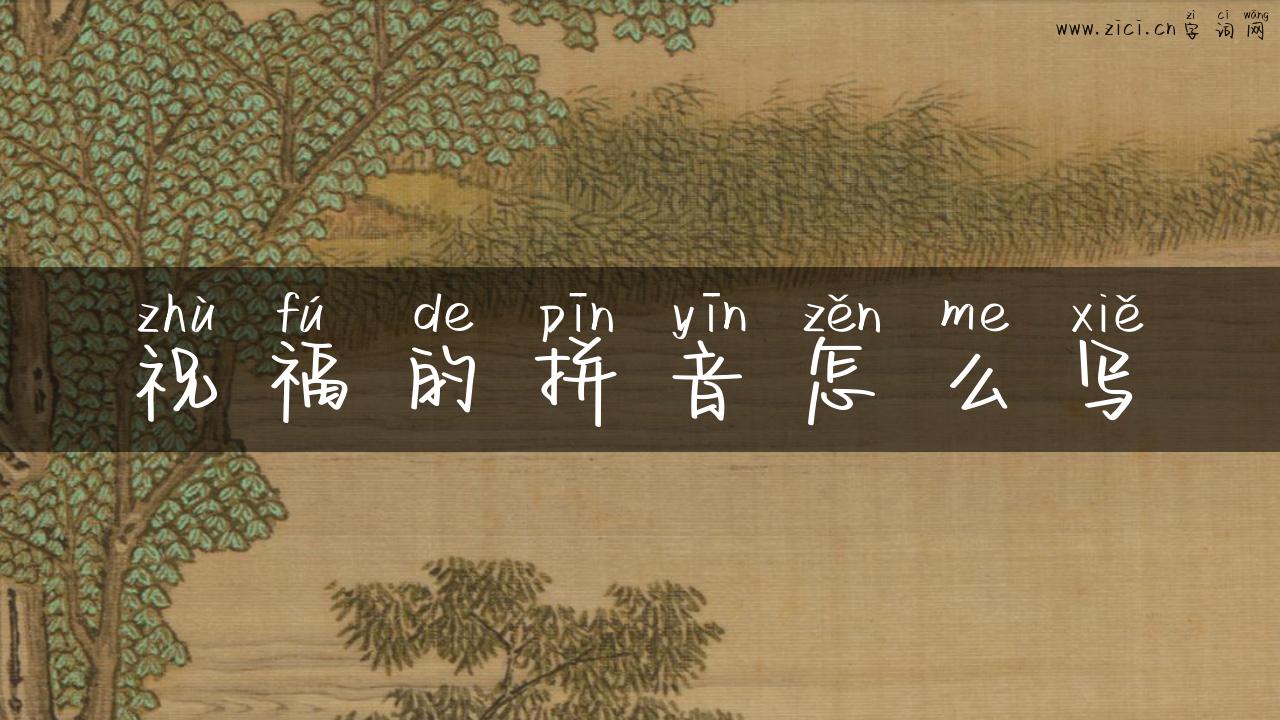 zì cí wǎng
www.zici.cn字词网
zhù fú de pīn yīn zěn me xiě
祝福的拼音怎么写